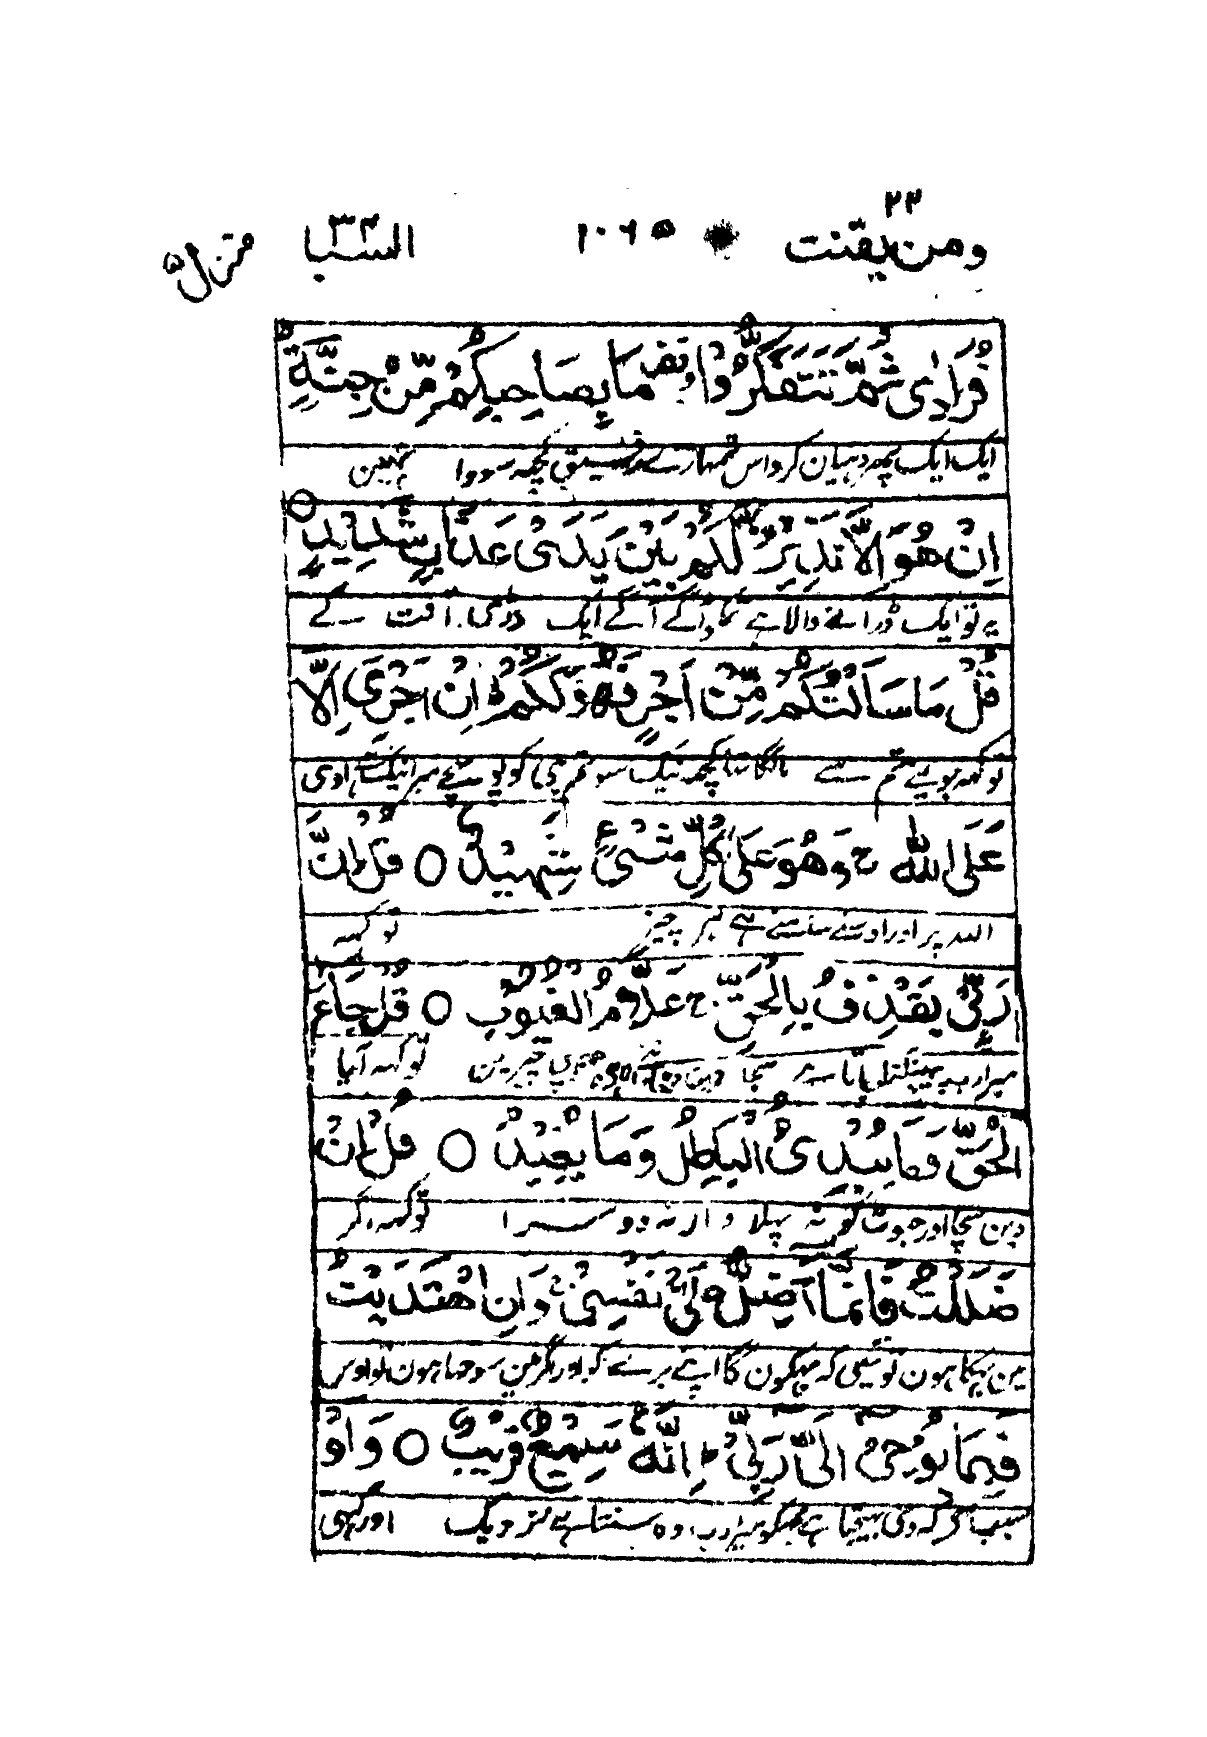 ومن یقنت ۲۲ ۱۰۶۵ السبا ۳۴ منزل ۵
فُرَادٰى ثُمَّ تَتَفَكَّرُوْا وقف مَا بِصَاحِبِكُمْ مِّنْ جِنَّةٍ ط
ایک ایک پھر دہیان کرو اس تمہارے رفیق کچھہ سودا نہین
اِنْ هُوَ اِلَّا نَذِيْرٌ لَّكُمْ بَيْنَ يَدَىْ عَذَابٍ شَدِيْدٍ ○
یہ تو ایک ڈرانے والا ہے تمکو آگے آگے ایک بڑی آفت کے
قُلْ مَا سَاَلْتُكُمْ مِّنْ اَجْرٍ فَهُوَ لَكُمْ ط اِنْ اَجْرِىَ اِلَّا
تو کہہ جو مینے تم سے مانگا تھا کچھہ نیگ سو تم ہی کو پہنچے میرا نیگ ہے اوسی
عَلَى اللّٰهِ ج وَهُوَ عَلٰى كُلِّ شَىْءٍ شَهِيْدٌ ○ قُلْ اِنَّ
اللہ پر اور اوسکے سامنے ہے ہر چیز تو کہہ
رَبِّىْ يَقْذِفُ بِالْحَقِّ ج عَلَّامُ الْغُيُوْبِ ○ قُلْ جَآءَ
میرا رب پھینکتا جاتا ہے سچا دین چھپی چیزین تو کہہ آیا
الْحَقُّ وَمَا يُبْدِئُ الْبَاطِلُ وَمَا يُعِيْدُ ○ قُلْ اِنْ
دین سچا اور جھوٹ کو نہ پہلا وار نہ دوسرا تو کہہ اگر
ضَلَلْتُ فَاِنَّمَآ اَضِلُّ عَلٰى نَفْسِىْ ج وَاِنِ اهْتَدَيْتُ
مین بہکا ہون تو یہی کہ بہکون گا اپنے برے کو اور اگر مین سوجھا ہون تو اوس
فَبِمَا يُوْحِىْٓ اِلَىَّ رَبِّىْ ط اِنَّهٗ سَمِيْعٌ قَرِيْبٌ ○ وَلَوْ
سبب سے کہ وحی بھیجتا ہے مجھکو میرا رب وہ سنتا ہے نزدیک اور کبھی